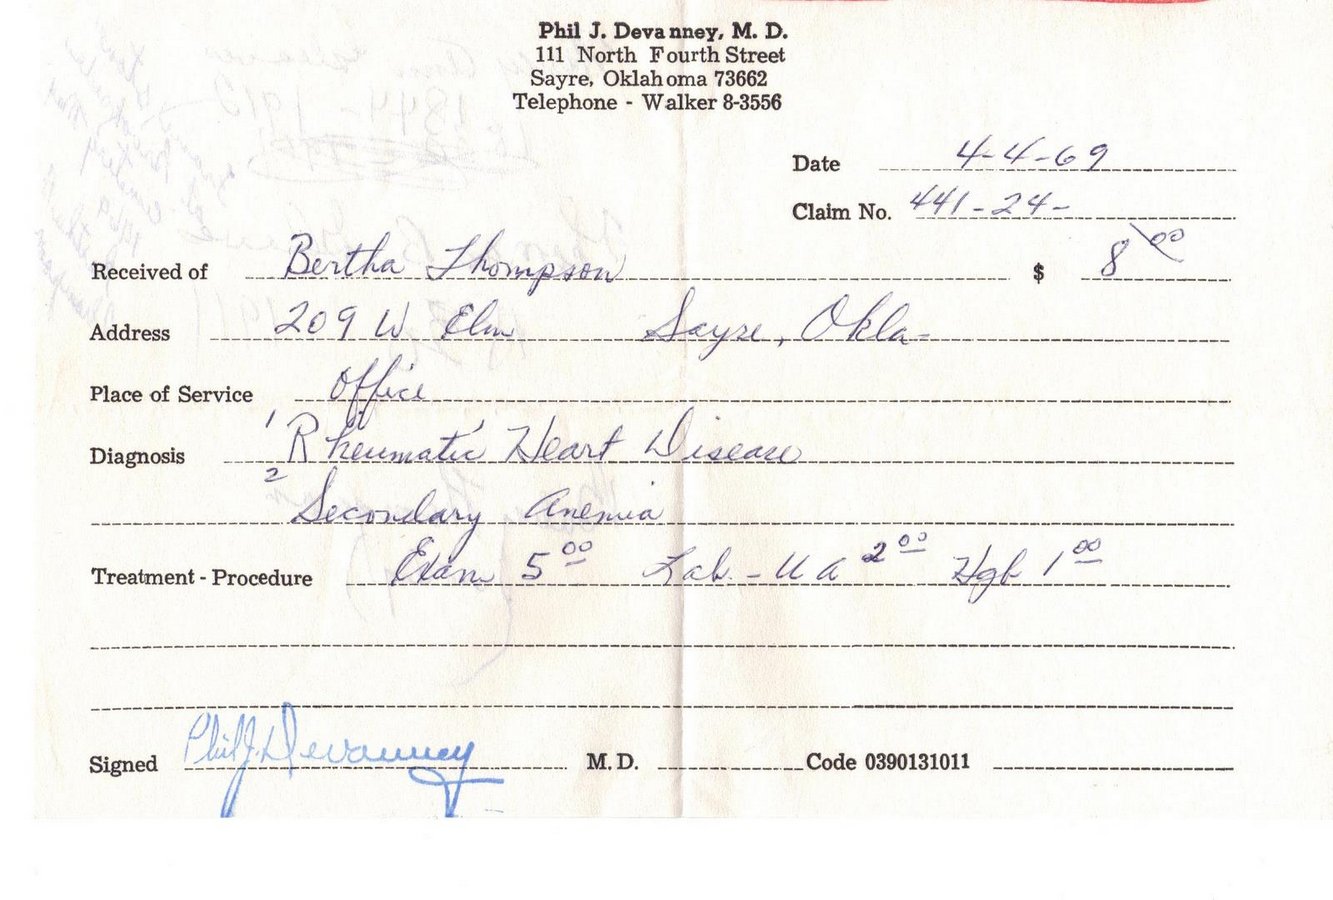 Phil J. Devanney, M. D.
111 North Fourth Street
Sayre, Oklahoma 73662
Telephone - Walker 8-3556
Date 4-4-69
Claim No. 441-24-
Received of Bertha Thompson $ 8 00
Address 209 W Elm Sayre, Okla-
Place of Service Office
Diagnosis 1 Rheumatic Heart Disease
2 Secondary Anemia
Treatment - Procedure Exam 5 00 Lab - U A 2 00 Hgb 1 00
Signed Phil J. Devanney M. D. Code 0390131011